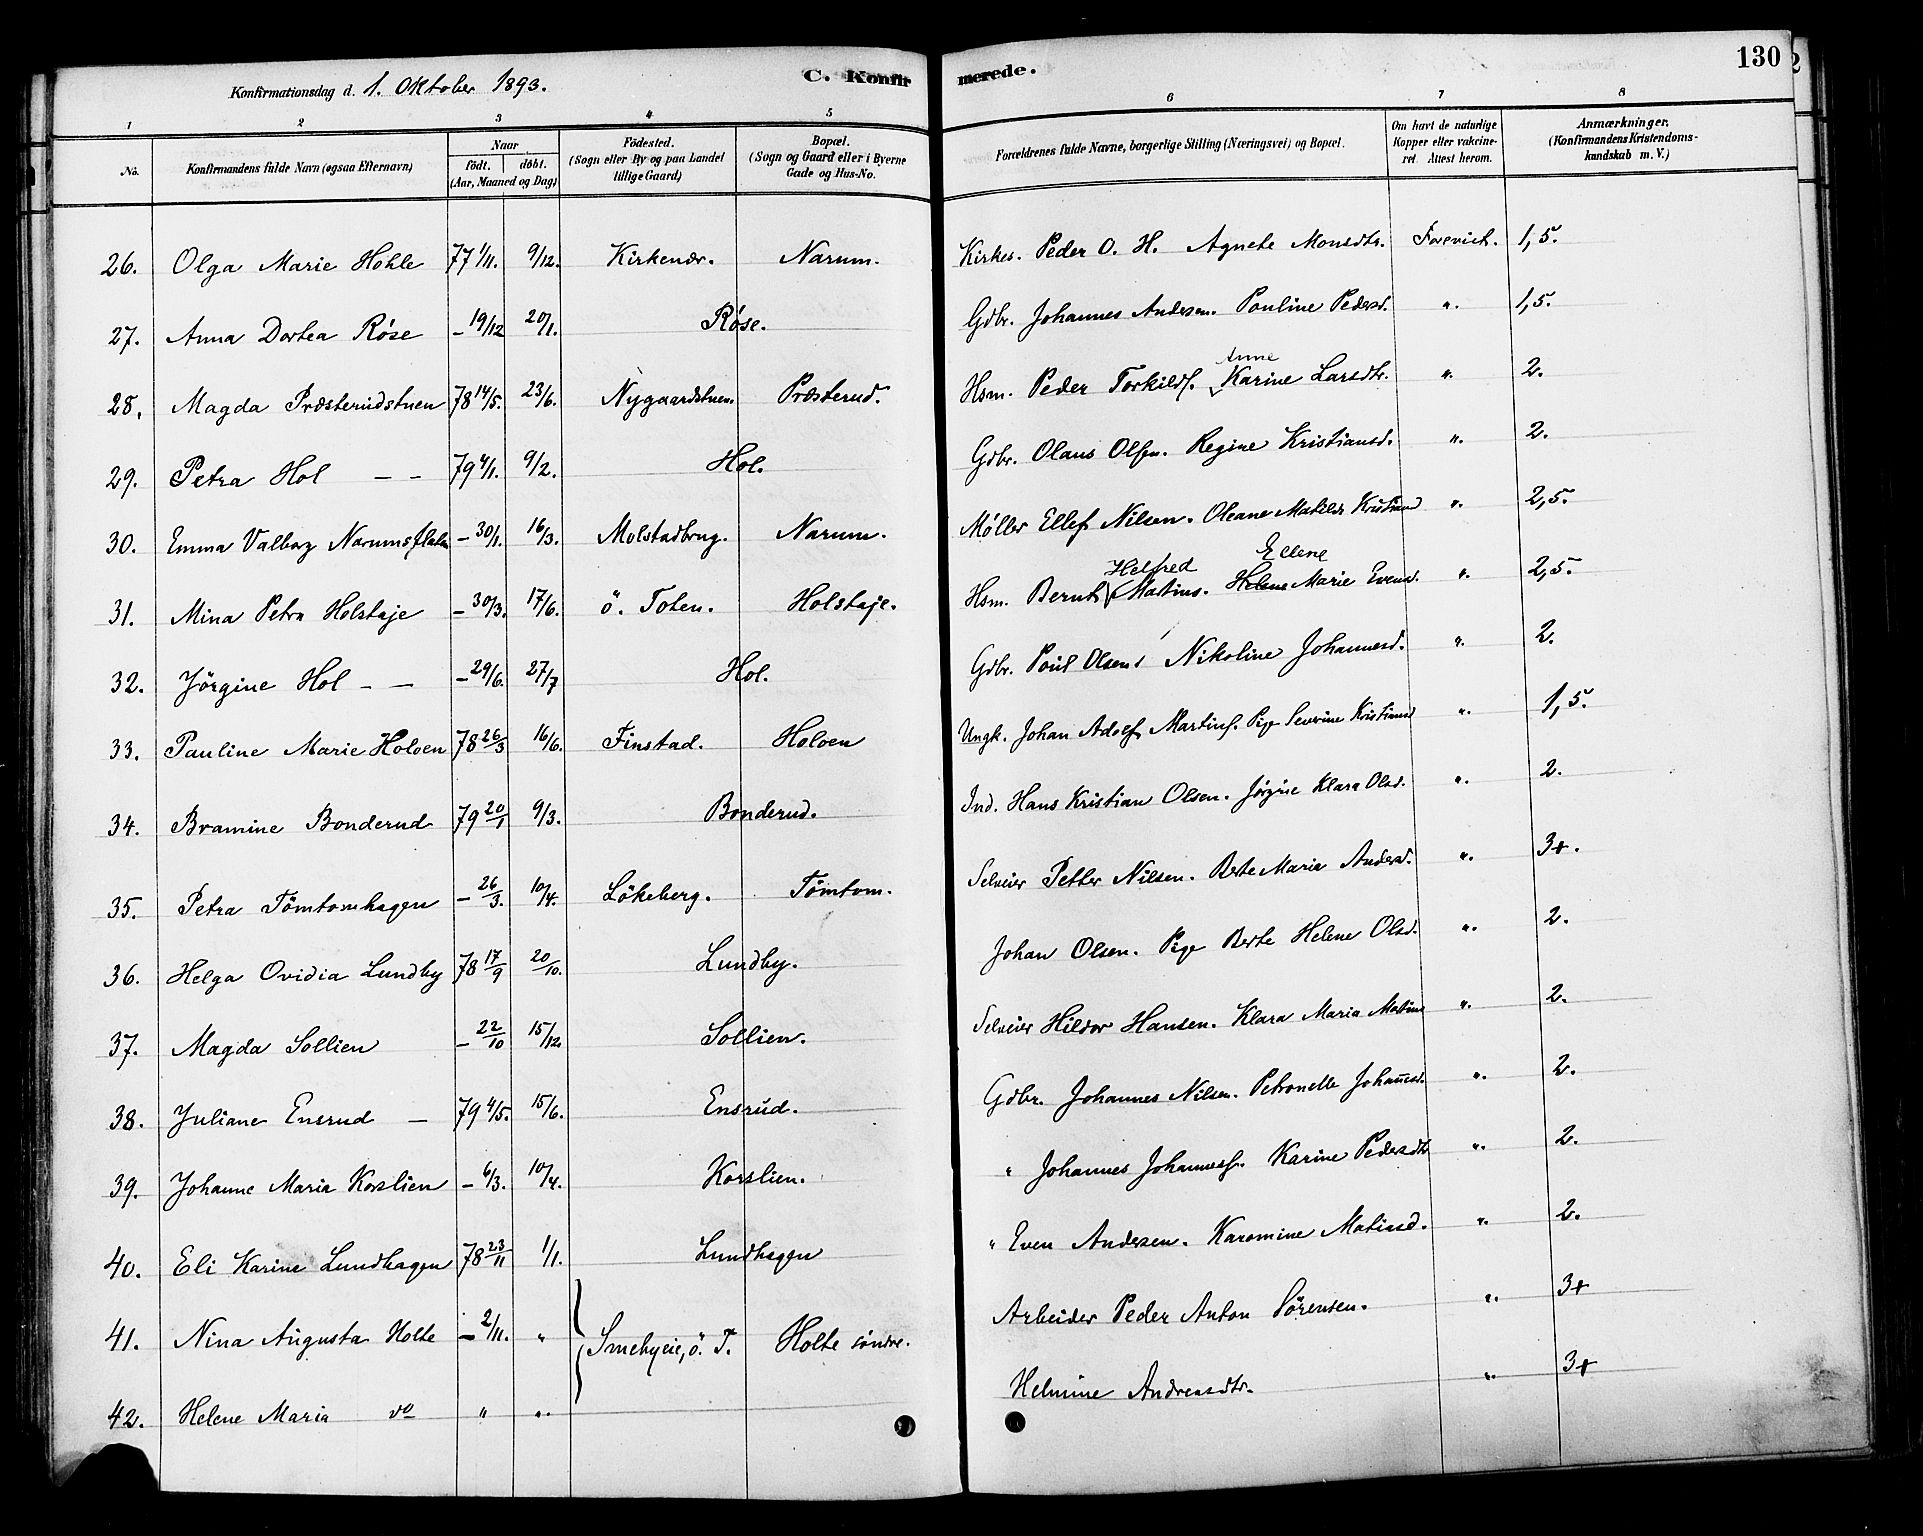 130
Konfirmationsdag d. 1. Oktober 1893.
C. Konfirmerede.
1 2 3 4 5 6 7 8
No.
Konfirmandens fulde Navn (ogsaa Efternavn)
Naar
født. døbt.
(Aar, Maaned og Dag)
Fødested.
(Sogn eller By og paa Landet
tillige Gaard)
Bopæl.
(Sogn og Gaard eller i Byerne
Gade og Hus-No.
Forældrenes fulde Navne, borgerlige Stilling (Næringsvei) og Bopæl.
Om havt de naturlige
Kopper eller vakcine-
ret. Attest herom.
Anmærkninger.
(Konfirmandens Kristendoms-
kundskab m. V.)
26. Olga Marie Hohle 77 1/11. 9/12. Kirkenær. Narum. Kirkes. Peder O. H. Agnete Monsdtr. Forevist. 1,5.
27. Anna Dortea Røse - 19/12 20/1. Røse. Gdbr. Johannes Andersen. Pouline Pedersd. " 1,5.
28. Magda Præsterudstuen 78 14/5. 23/6. Nygaardstuen. Præsterud. Hsm. Peder Torkilds. Anne Karine Larsdtr. " 2.
29. Petra Hol - - 79 4/1. 9/2. Hol. Gdbr. Olaus Olsen. Regine Kristiansd. " 2.
30. Emma Valborg Narumsflaten - 30/1. 16/3. Molstadbrug. Narum. Møller Ellef Nilsen. Oleane Matilde Kristiansd " 2,5.
31. Mina Petra Holstaje - 30/3. 17/6. ö. Toten. Holstaje. Hsm. Bernt Helfred Martins. Helene Ellene Marie Evensd. " 2,5.
32. Jörgine Hol - - - 29/6. 27/7 Hol. Gdbr. Poul Olsen. Nikoline Johannesd. " 2.
33. Pauline Marie Holoen 78 26/3 16/6. Finstad. Holoen Ungk. Johan Adolf Martins. Pige Severine Kristiansd " 1,5.
34. Bramine Bonderud 79 20/1 9/3. Bonderud. Ind. Hans Kristian Olsen. Jörgine Klara Olsd. " 2.
35. Petra Tömtomhagen - 26/3. 10/4. Lökeberg. Tömtom. Selveier Petter Nilsen. Berte Maria Andersd. " 3+.
36. Helga Ovidia Lundby 78 17/9 20/10. Lundby. Johan Olsen. Pige Berte Helene Olsd. " 2.
37. Magda Sollien - 22/10 15/12. Sollien. Selveier Hildor Hansen. Klara Maria Matins " 2.
38. Juliane Ensrud - 79 4/5. 15/6. Ensrud. Gdbr. Johannes Nilsen. Petronelle Johannesd. " 2.
39. Johanne Maria Korslien - 6/3. 10/4. Korslien. " Johannes Johanness. Karine Pedersdtr " 2.
40. Eli Karine Lundhagen 78 23/11 1/1. Lundhagen " Even Andersen. Karomine Matiasd. " 2.
41. Nina Augusta Holte - 2/11. " Smebyeie, ö. T. Holte söndre. Arbeider Peder Anton Sörensen. " 3+
42. Helene Maria do " " Helmine Andreasdtr. " 3+